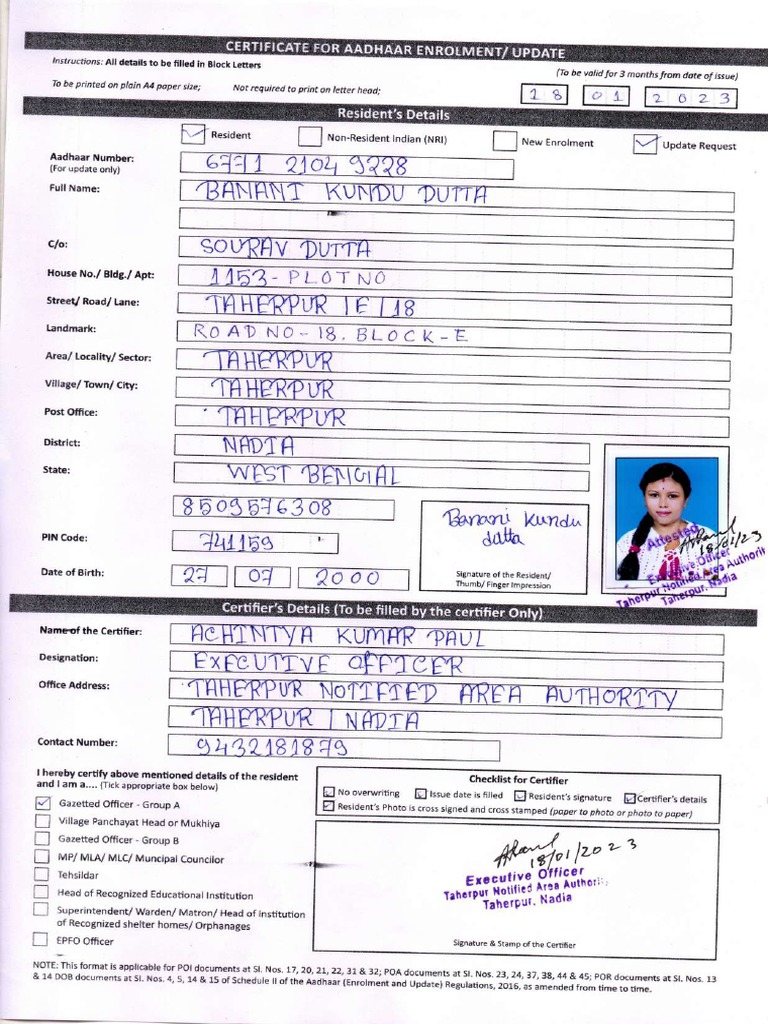 CERTIFICATE FOR AADHAAR ENROLMENT/ UPDATE
Instructions: All details to be filled in Block Letters
(To be valid for 3 months from date of issue)
To be printed on plain A4 paper size; Not required to print on letter head;
18 01 2023
Resident's Details
Resident Non-Resident Indian (NRI) New Enrolment Update Request
Aadhaar Number: 6771 2104 9228
(For update only)
Full Name: BANANI KUNDU DUTTA
C/o: SOURAV DUTTA
House No./ Bldg./ Apt: 1153-PLOTNO
Street/ Road/ Lane: TAHERPUR |E|18
Landmark: ROAD NO-18. BLOCK-E
Area/ Locality/ Sector: TAHERPUR
Village/ Town/ City: TAHERPUR
Post Office: TAHERPUR
District: NADIA
State: WEST BENGAL
8509576308
Banani Kundu
dutta
PIN Code: 741159
Signature of the Resident/
Thumb/ Finger Impression
Date of Birth: 27 07 2000
Attested
18/01/23
Executive Officer
Taherpur Notified Area Authority
Taherpur, Nadia
Certifier's Details (To be filled by the certifier Only)
Name of the Certifier: ACHINTYA KUMAR PAUL
Designation: EXECUTIVE OFFICER
Office Address: TAHERPUR NOTIFIED AREA AUTHORITY
TAHERPUR | NADIA
Contact Number: 9432181879
I hereby certify above mentioned details of the resident
and I am a.... (Tick appropriate box below)
Gazetted Officer - Group A
Village Panchayat Head or Mukhiya
Gazetted Officer - Group B
MP/ MLA/ MLC/ Muncipal Councilor
Tehsildar
Head of Recognized Educational Institution
Superintendent/ Warden/ Matron/ Head of institution
of Recognized shelter homes/ Orphanages
EPFO Officer
Checklist for Certifier
No overwriting Issue date is filled Resident's signature Certifier's details
Resident's Photo is cross signed and cross stamped (paper to photo or photo to paper)
18/01/2023
Executive Officer
Taherpur Notified Area Authority
Taherpur, Nadia
Signature & Stamp of the Certifier
NOTE: This format is applicable for POI documents at Sl. Nos. 17, 20, 21, 22, 31 & 32; POA documents at Sl. Nos. 23, 24, 37, 38, 44 & 45; POR documents at Sl. Nos. 13
& 14 DOB documents at Sl. Nos. 4, 5, 14 & 15 of Schedule II of the Aadhaar (Enrolment and Update) Regulations, 2016, as amended from time to time.